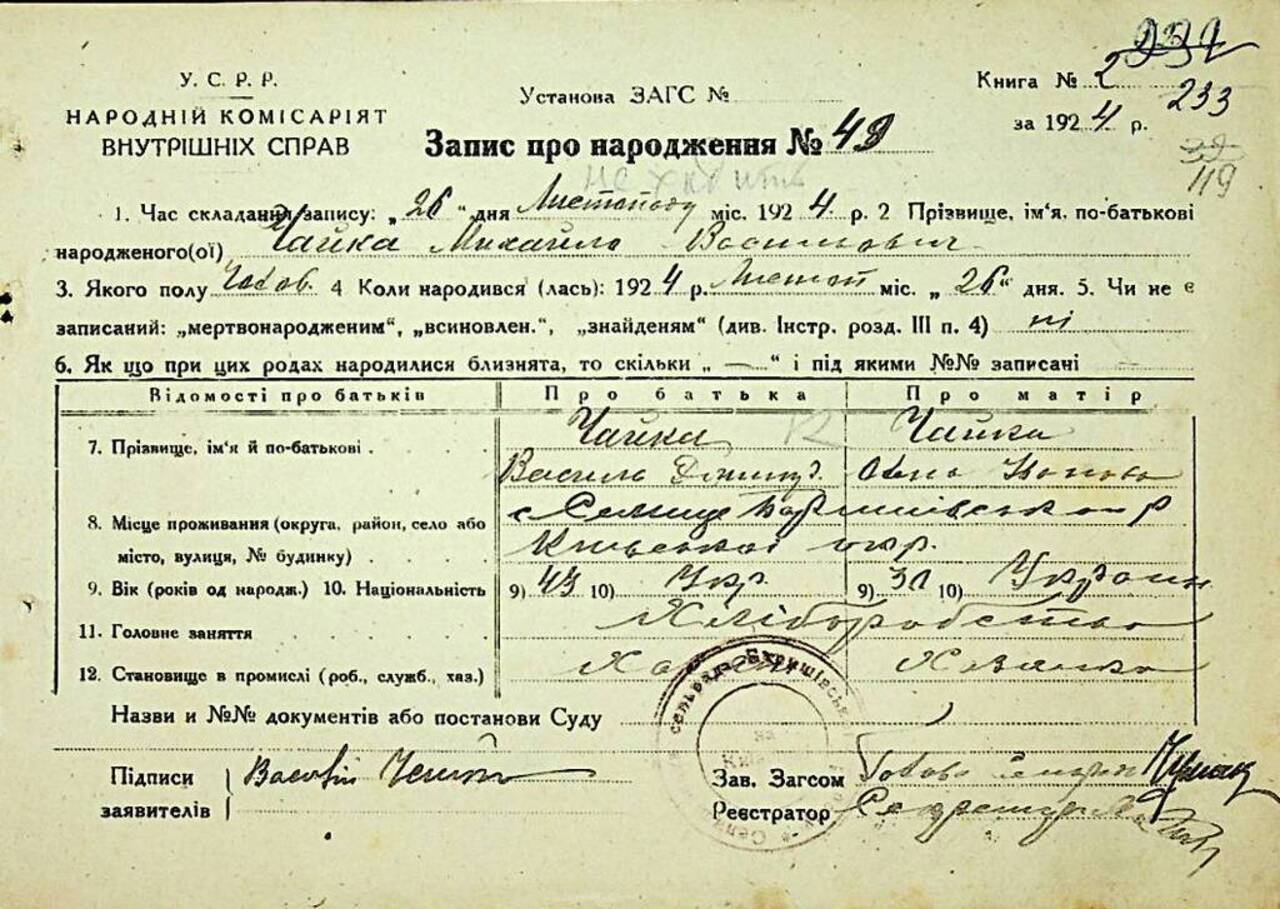 У. С. Р. Р.
НАРОДНІЙ КОМІСАРІЯТ
ВНУТРІШНІХ СПРАВ
Установа ЗАГС №
Запис про народження № 48
Книга № 2
за 1924 р.
233
119
1. Час складання запису: „26“ дня Листопаду міс. 1924 р. 2 Прізвище, ім'я, по-батькові
народженого(ої) Чайка Михайло Васильович
3. Якого полу Чолов. 4 Коли народився (лась): 1924 р. Листоп міс. „26“ дня. 5. Чи не є
записаний: „мертвонародженим“, „всиновлен.“, „знайденям“ (див. Інстр. розд. III п. 4) ні
6. Як що при цих родах народилися близнята, то скільки „—“ і під якими №№ записані —
Відомості про батьків Про батька Про матір
7. Прізвище, ім'я й по-батькові . Чайка Чайка
Василь
8. Місце проживання (округа, район, село або с Селище Баришівського р
місто, вулиця, № будинку) . Київської окр.
9. Вік (років од народж.) 10. Національність 9) 43 10) Укр. 9) 31 10) Украин
11. Головне заняття Хліборобство
12. Становище в промислі (роб., служб., хаз.)
Назви и №№ документів або постанови Суду
Підписи
заявителів
Зав. Загсом Голова
Реєстратор Секретар